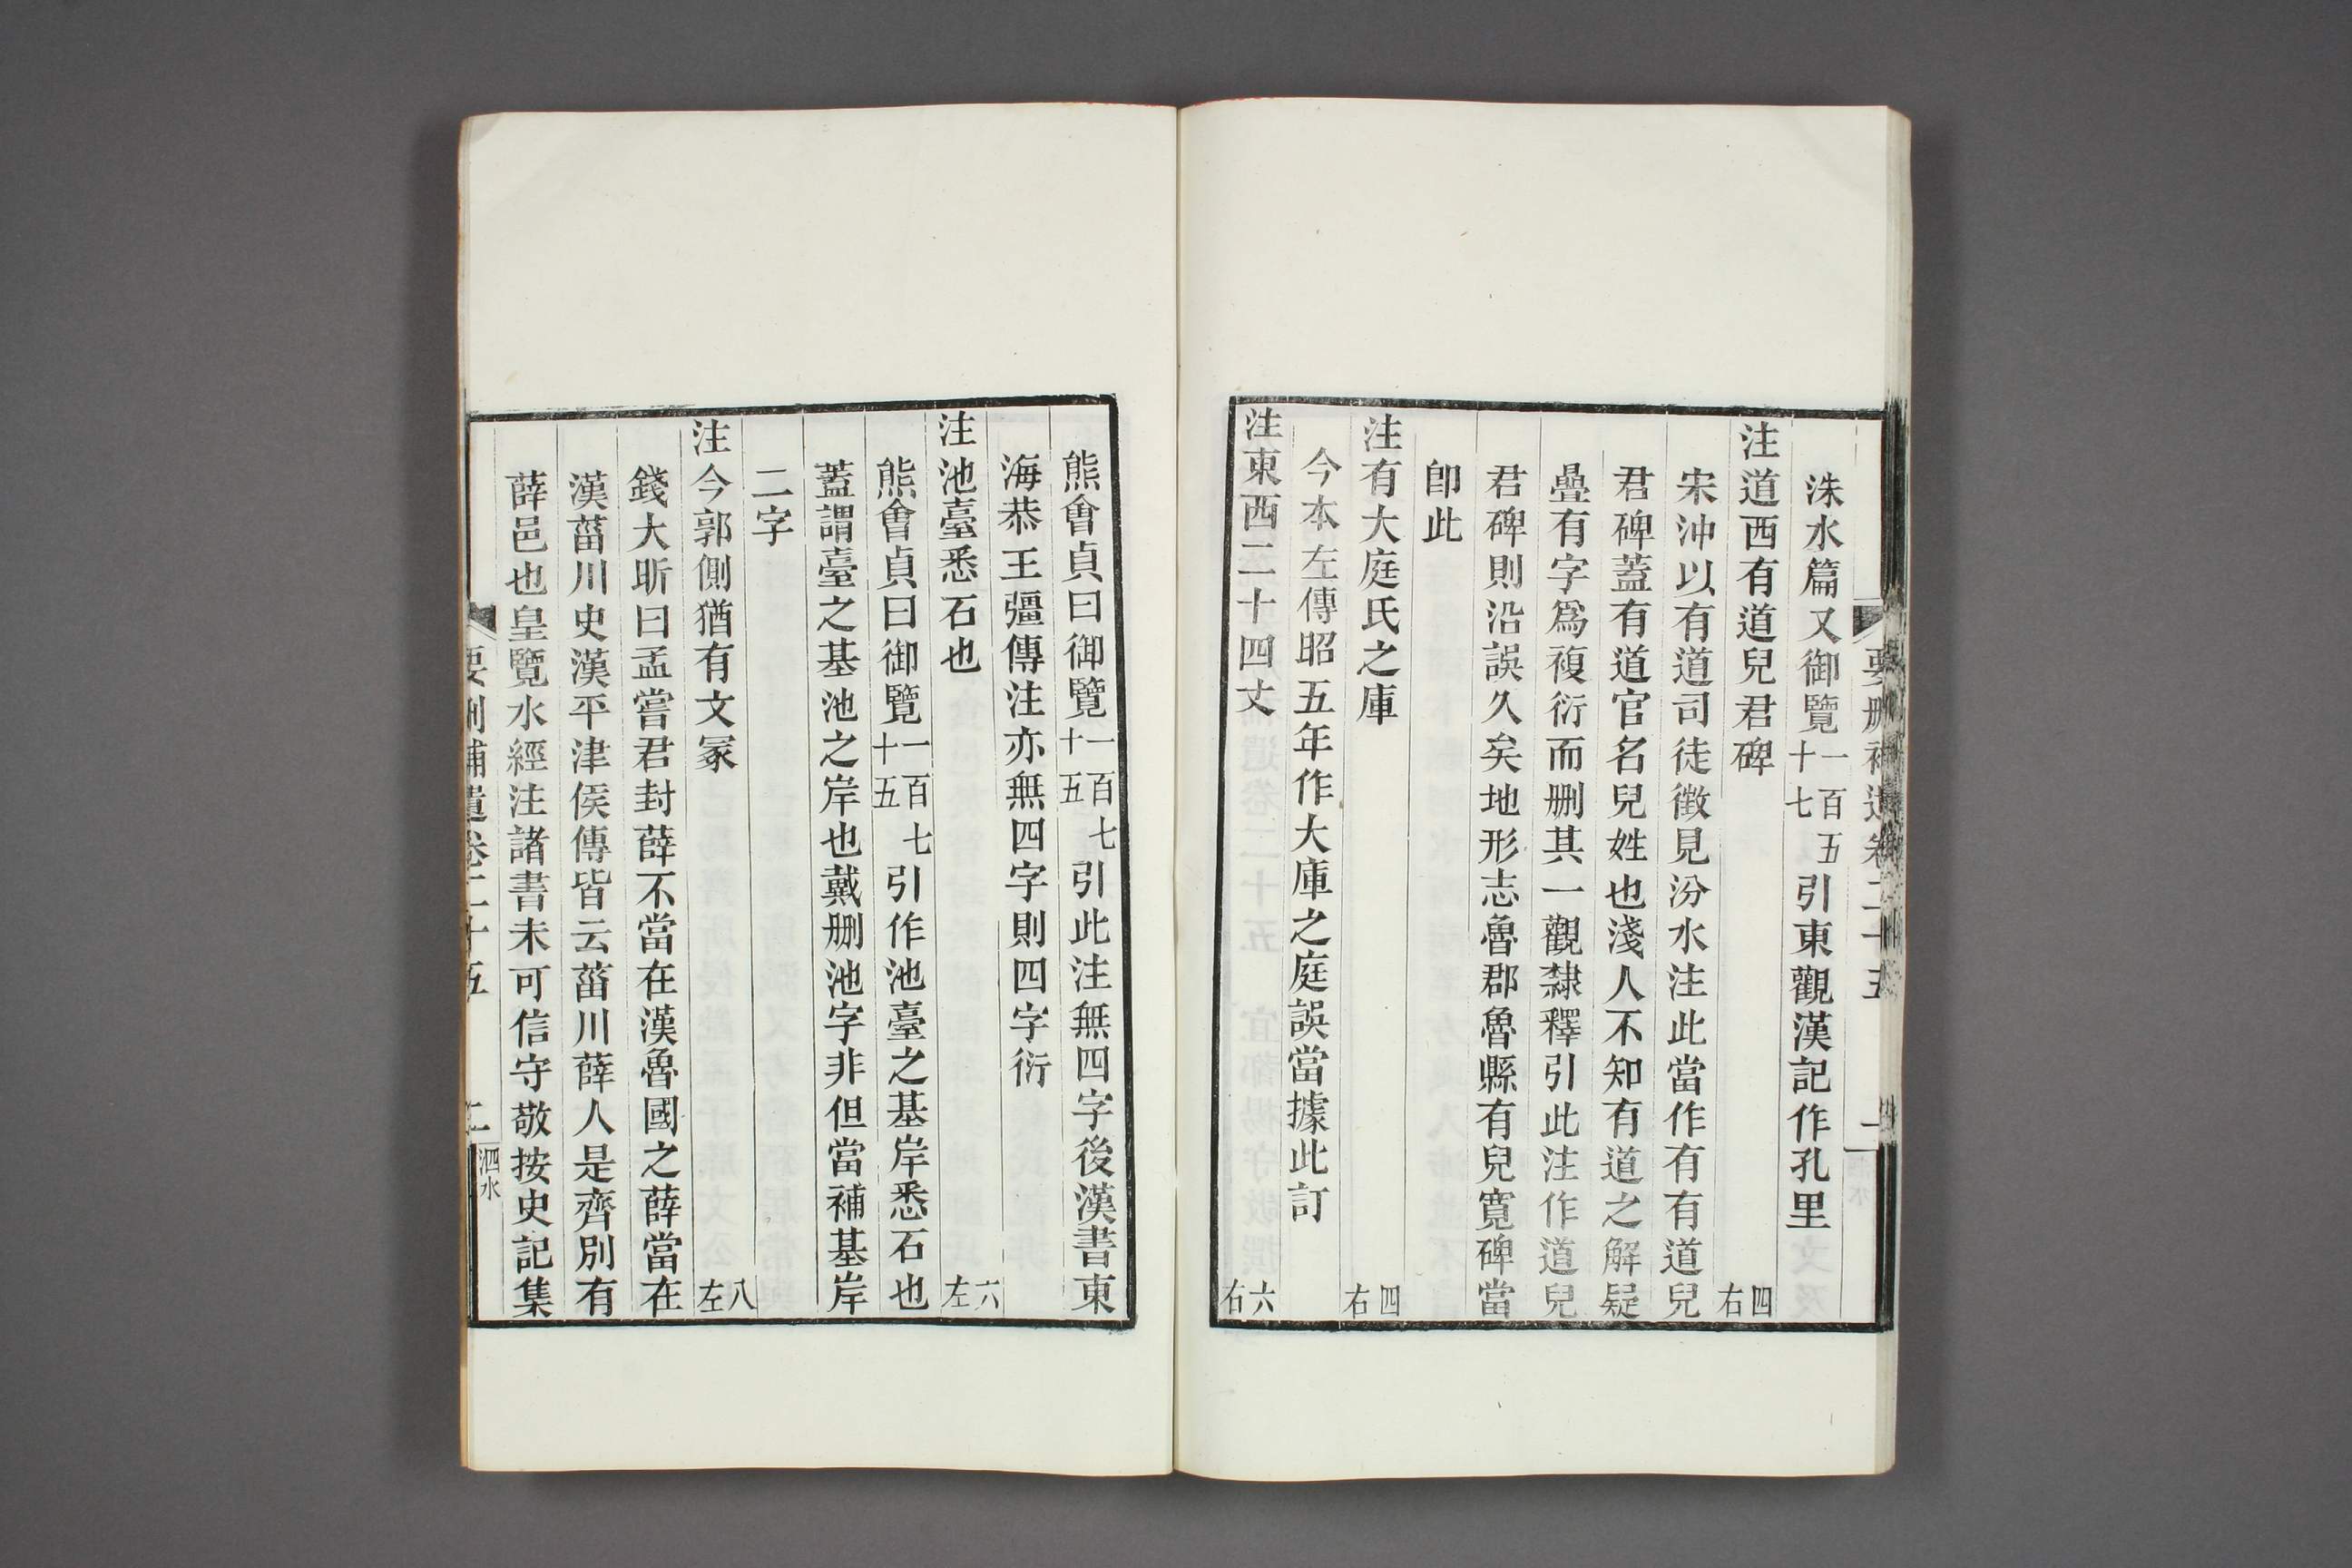 洙水篇又御覽一百五十七引東觀漢記作孔里
注道西有道兒君碑 四右
宋沖以有道司徒徵見汾水注此當作有有道兒
君碑蓋有道官名兒姓也淺人不知有道之解疑
疊有字爲複衍而删其一觀隸釋引此注作道兒
君碑則沿誤久矣地形志魯郡魯縣有兒寬碑當
卽此
注有大庭氏之庫 四右
今本左傳昭五年作大庫之庭誤當據此訂
注東西二十四丈 六右
熊會貞曰御覽一百七十五引此注無四字後漢書東
海恭王彊傳注亦無四字則四字衍
注池臺悉石也 六左
熊會貞曰御覽一百七十五引作池臺之基岸悉石也
蓋謂臺之基池之岸也戴删池字非但當補基岸
二字
注今郭側猶有文冢 八左
錢大昕曰孟嘗君封薛不當在漢魯國之薛當在
漢菑川史漢平津侯傳皆云菑川薛人是齊別有
薛邑也皇覽水經注諸書未可信守敬按史記集
要删補遺卷二十五 二 泗水